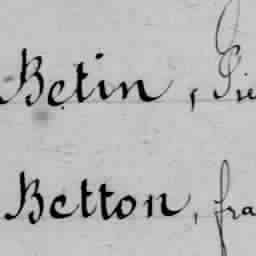 Betin, Pie
Betton, fra